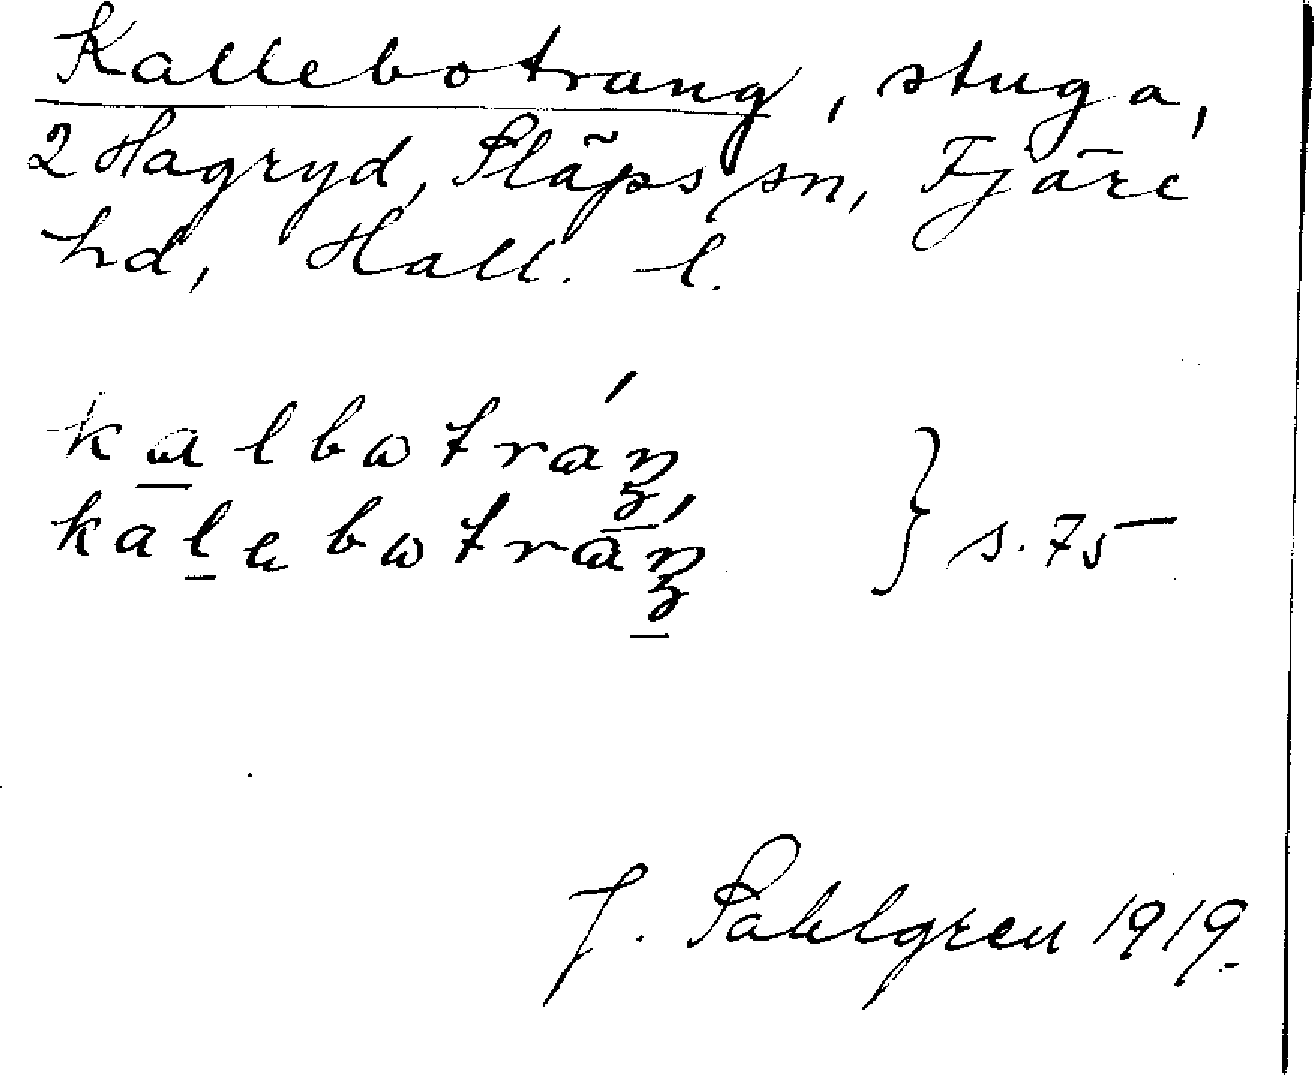 Kallebotrang, stuga,
2 Hagryd, Släps sn, Fjäre
hd, Hall. l.
kalbωtráŋ
kalebωtráŋ } s. 75
J. Sahlgren 1919.